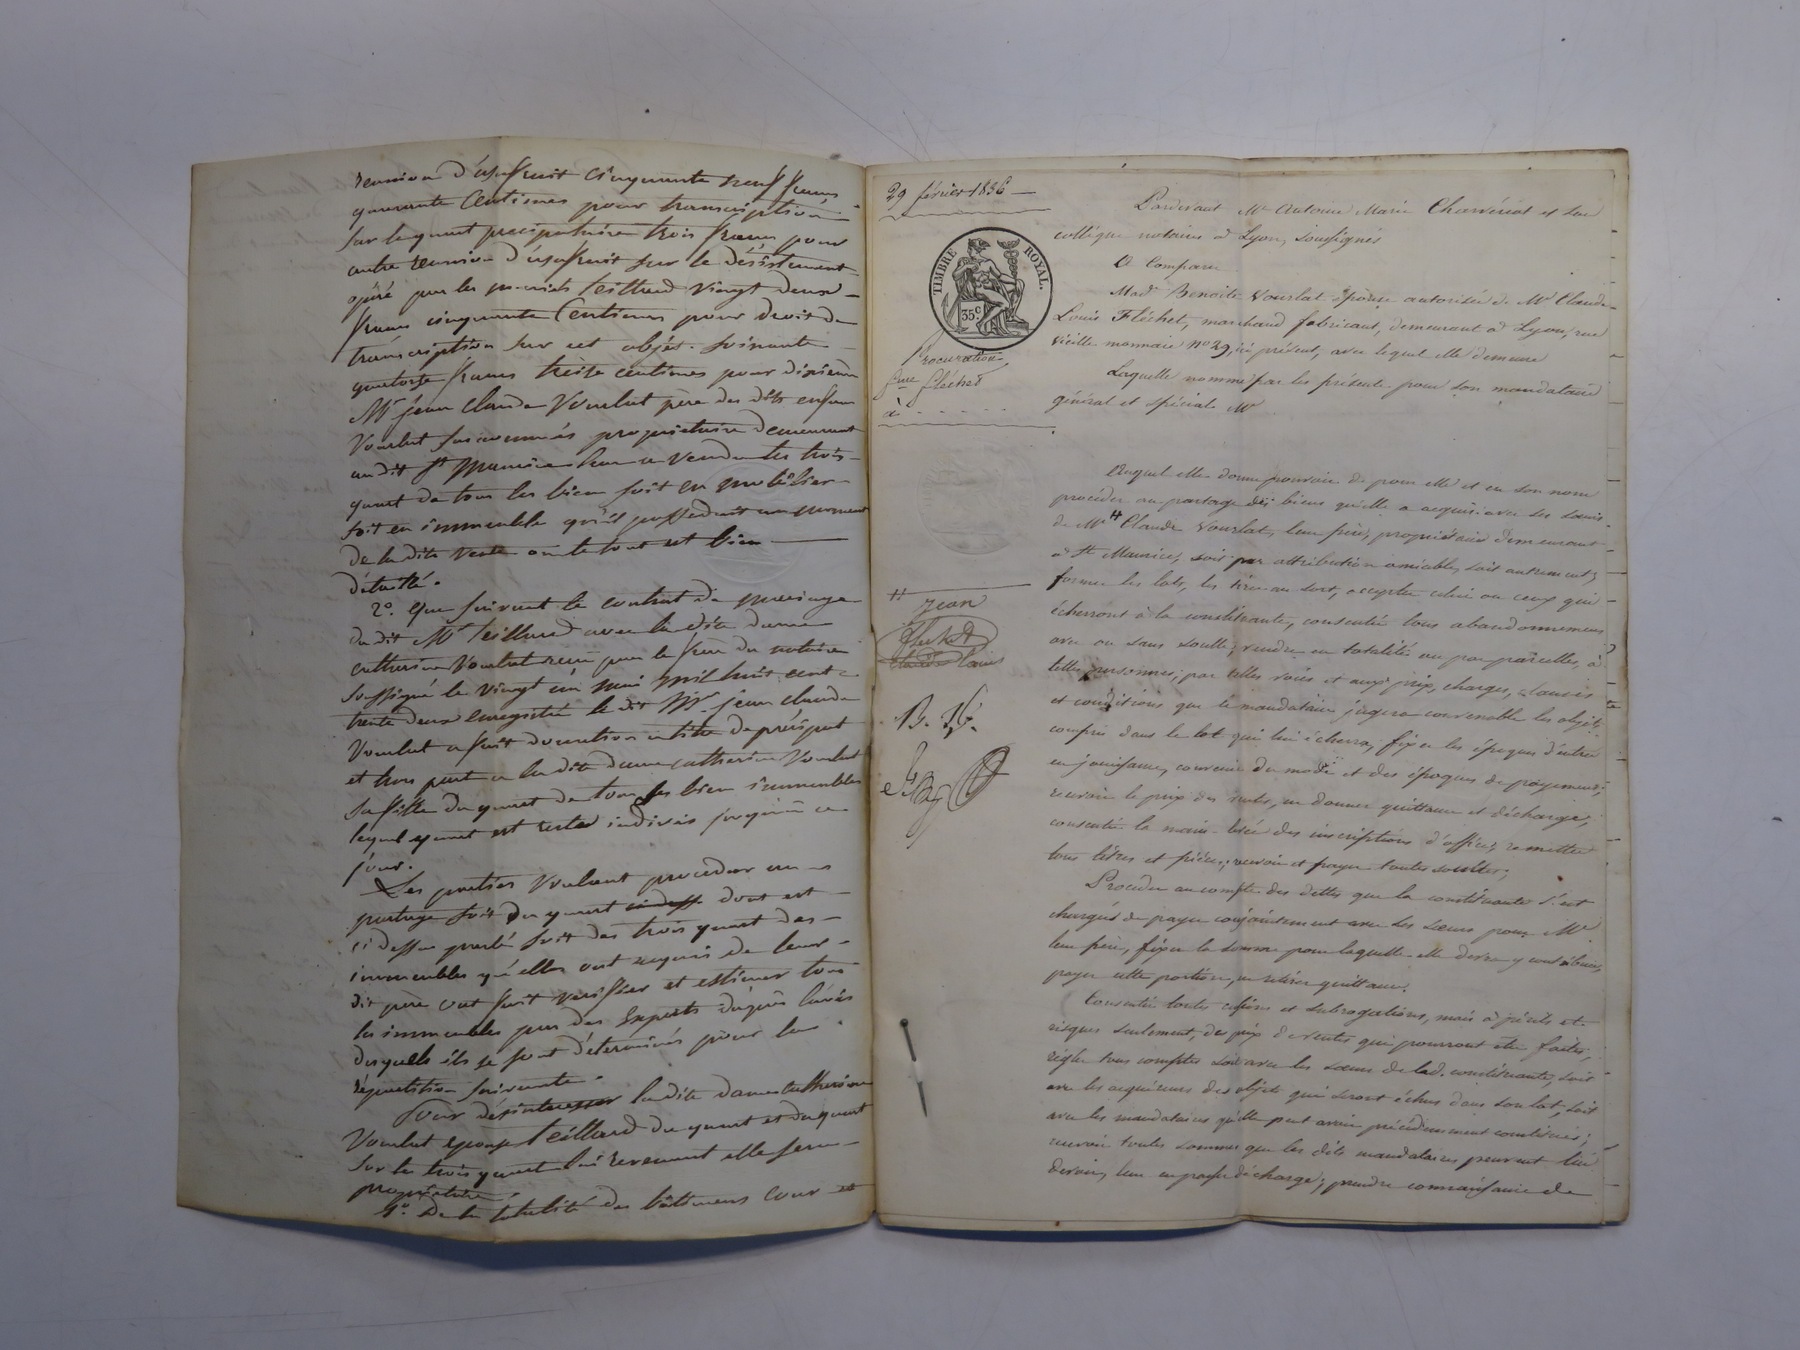 réunion d'usufruit cinquante neuf francs
quarante centimes pour transcription
sur le quart préciputaire trois francs pour
autre réunion d'usufruit sur le désistement
opéré par les mariés teillard vingt deux
francs cinquante centimes pour droit de
transcription sur cet objet. soixante
quatorze francs treize centimes pour dixième
Mr jean Claude Vourlat père des dits enfans
Vourlat susnommés propriétaire demeurant
au dit St Maurice leur a vendu les trois
quart de tous les bien soit en mobilier
soit en immeuble qu'il possedait au moment
de la dite vente ou le tout est bien
détaillé.
2o. Que suivant le contrat de mariage
du dit Mr teillard avec la dite dame
catherine Vourlat reçu par le du notaire
soussigné le vingt un mai mil huit cent
trente deux enregistré le dit Mr. jean claude
Vourlat a fait donation a titre de préciput
et hors part a la dite dame catherine Vourlat
sa fille du quart de tous les bien immeubles
lequel quart est resté indivis jusqu'à ce
jour.
Les parties voulant proceder au
partage soit du quart dont est
ci dessus parlé soit des trois quart des
immeubles qu'elles ont acquis de leur
dit pere ont fait vérifier et estimer tous
les immeubles par des Experts
desquels ils se sont déterminés pour la
répartition suivante.
Pour désinteresser la dite dame catherine
Vourlat epouse teillard du quart et du quart
sur les trois quart lui revenant elle sera
propriétaire.
1o. De la totalité des bâtimens cour et
29 février 1836
TIMBRE ROYAL.
35 c
Procuration
fme fléchet
à . . . . .
Pardevant Me Antoine Marie Charvériat et son
collègue notaires à Lyon, soussignés
A Comparu
Made Benoite Vourlat épouse autorisée de Mr Claude
Louis Fléchet, marchand fabricant, demeurant à Lyon, rue
vieille monnaie no 29, ici présent, avec lequel elle demeure
Laquelle nomme par les présentes pour son mandataire
général et spécial Mr
Auquel elle donne pouvoir de pour elle et en son nom
procéder au partage des biens qu'elle a acquis avec ses soeurs
de Mr Claude Vourlat, leur père, propriétaire demeurant
à St Maurice, soit par attribution amiable, soit autrement;
former les lots, les tirer au sort, accepter celui ou ceux qui
écherront à la constituante, consentir tous abandonnemens
avec ou sans soulte; vendre en totalité ou par parcelles, à
telles personnes, par telles voies et aux prix, charges, clauses
et conditions que le mandataire jugera convenable les objets
compris dans le lot qui lui écherra, fixer les époques d'entrée
en jouissance, convenir du mode et des époques de payement;
recevoir le prix des ventes, en donner quittance et décharge;
consentir la main-levée des inscriptions d'office; remettre
tous titres et pièces; recevoir et payer toutes soultes;
Procéder au compte des dettes que la constituante s'est
chargée de payer conjointement avec ses soeurs pour Mr
leur père, fixer la somme pour laquelle elle devra y contribuer,
payer cette portion, en retirer quittance.
Consentir toutes cessions et subrogations, mais à périls et
risques seulement, des prix de ventes qui pourront être faites;
régler tous comptes soit avec les soeurs de lad. constituante, soit
avec les acquéreurs des objets qui seront échus dans son lot, soit
avec les mandataires qu'elle peut avoir précédemment constitués;
recevoir toutes sommes que les dits mandataires peuvent lui
devoir, leur en passer décharge; prendre connaissance de
jean
B. V.